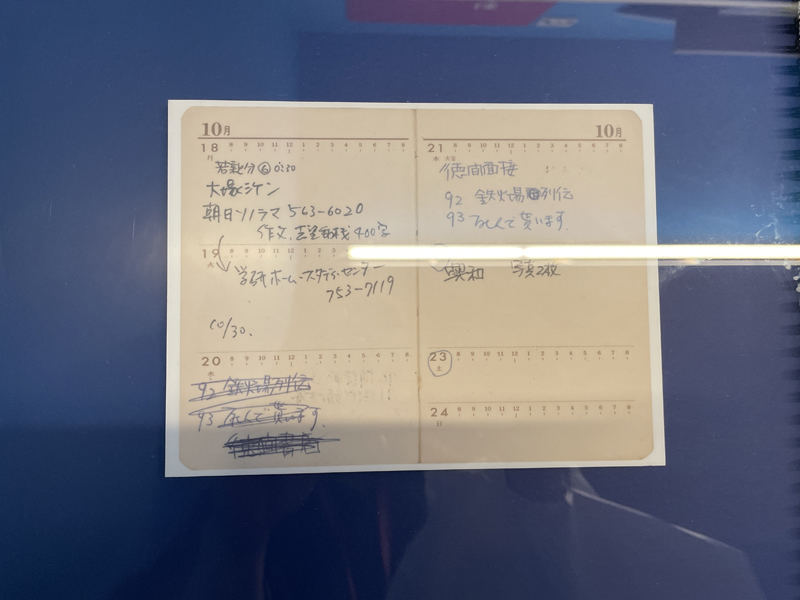 10月
18 8 9 10 11 12 1 2 3 4 5 6 7 8
月
6:30
大塚
朝日ソノラマ 563-6020
作文、志望 400字
19
火
学研ホーム・スタディ・センター
753-7119
10/30.
20 8 9 10 11 12 1 2 3 4 5 6 7 8
水
92 鉄火場列伝
93 死んで貰います。
10月
21 8 9 10 11 12 1 2 3 4 5 6 7 8
木
徳間面接
92 鉄火場 列伝
93 死んで貰います
興和 写真2枚
23 8 9 10 11 12 1 2 3 4 5 6 7 8
土
24 8 9 10 11 12 1 2 3 4 5 6 7 8
日